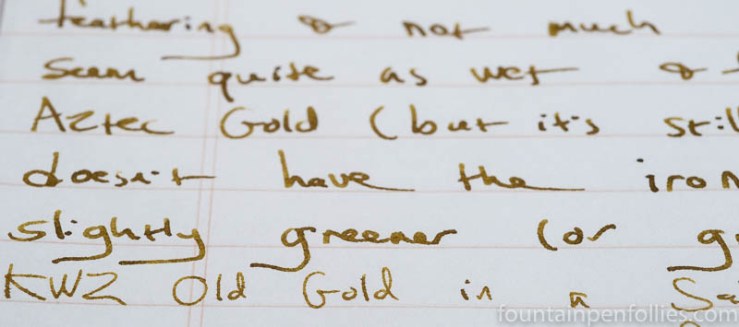 feathering & not much
seem quite as wet &
Aztec Gold (but it's stil
doesn't have the iron
slightly greener (or g
KWZ Old Gold in a Sa
fountainpenfollies.com